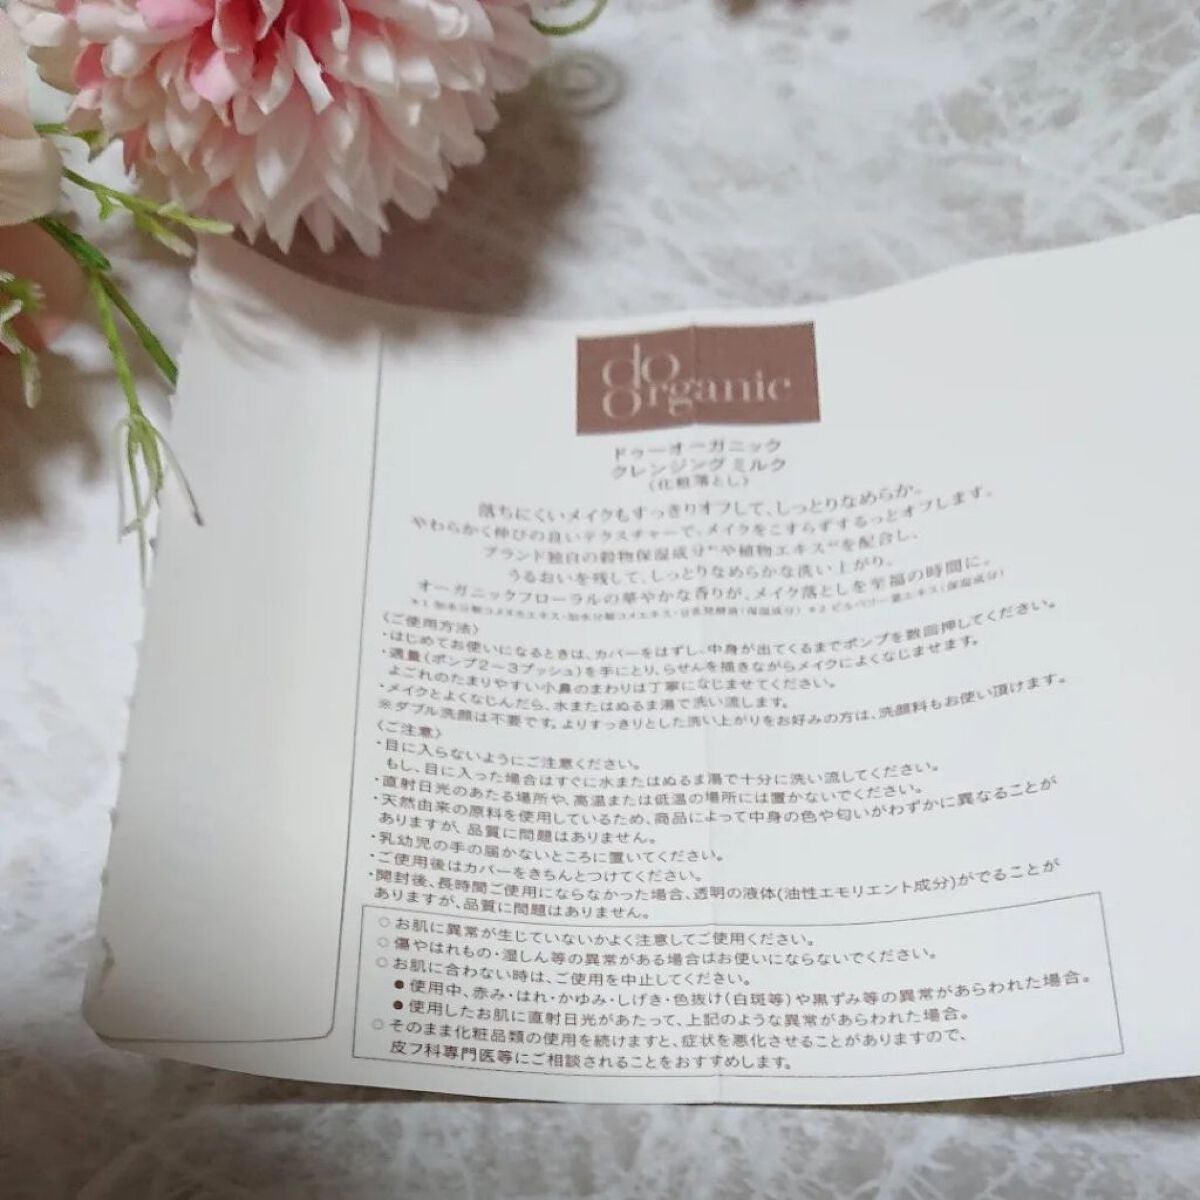 do
organic
ドゥーオーガニック
クレンジング ミルク
(化粧落とし)
落ちにくいメイクもすっきりオフして、しっとりなめらか。
やわらかく伸びの良いテクスチャーで、メイクをこすらずするっとオフします。
ブランド独自の穀物保湿成分*¹や植物エキス*²を配合し、
うるおいを残して、しっとりなめらかな洗い上がり。
オーガニックフローラルの華やかな香りが、メイク落としを至福の時間に。
*1 加水分解コメヌカエキス・加水分解コメエキス・豆乳発酵液(保湿成分) *2 ビルベリー葉エキス(保湿成分)
〈ご使用方法〉
・はじめてお使いになるときは、カバーをはずし、中身が出てくるまでポンプを数回押してください。
・適量(ポンプ2〜3プッシュ)を手にとり、らせんを描きながらメイクによくなじませます。
よごれのたまりやすい小鼻のまわりは丁寧になじませてください。
・メイクとよくなじんだら、水またはぬるま湯で洗い流します。
※ダブル洗顔は不要です。よりすっきりとした洗い上がりをお好みの方は、洗顔料もお使い頂けます。
〈ご注意〉
・目に入らないようにご注意ください。
もし、目に入った場合はすぐに水またはぬるま湯で十分に洗い流してください。
・直射日光のあたる場所や、高温または低温の場所には置かないでください。
・天然由来の原料を使用しているため、商品によって中身の色や匂いがわずかに異なることが
ありますが、品質に問題はありません。
・乳幼児の手の届かないところに置いてください。
・ご使用後はカバーをきちんとつけてください。
・開封後、長時間ご使用にならなかった場合、透明の液体(油性エモリエント成分)がでることが
ありますが、品質に問題はありません。
○お肌に異常が生じていないかよく注意してご使用ください。
○傷やはれもの・湿しん等の異常がある場合はお使いにならないでください。
○お肌に合わない時は、ご使用を中止してください。
●使用中、赤み・はれ・かゆみ・しげき・色抜け(白斑等)や黒ずみ等の異常があらわれた場合。
●使用したお肌に直射日光があたって、上記のような異常があらわれた場合。
○そのまま化粧品類の使用を続けますと、症状を悪化させることがありますので、
皮フ科専門医等にご相談されることをおすすめします。